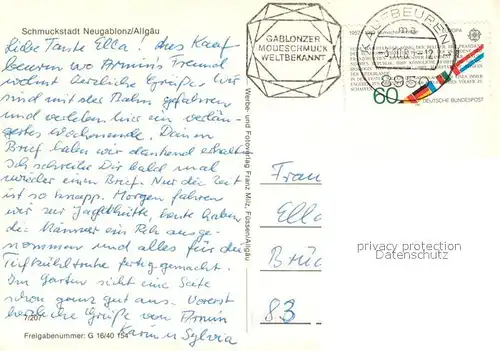 Schmuckstadt Neugablonz/Allgäu
Liebe Tante Ella! Aus Kauf-
beuren wo Armin's Freund
wohnt herzliche Grüße. Wir
sind mit der Bahn gefahren
und verleben hier ein verlän-
gertes Wochenende. Deinen
Brief haben wir dankend erhalten
ich schreibe Dir bald mal
wieder einen Brief. Nur die Zeit
ist so knapp. Morgen fahren
wir zur Jagdhütte, heute haben
die Männer ein Reh ausge-
nommen und alles für die
Tiefkühltruhe fertig gemacht.
Im Garten sieht eine Seite
schon ganz gut aus. Vorerst
herzliche Grüße von Armin
Karin u Sylvia
7/207
Freigabenummer: G 16/40 154
Werbe- und Fotoverlag Franz Milz, Füssen/Allgäu
GABLONZER
MODESCHMUCK
WELTBEKANNT
KAUFBEUREN 1
8950
1957
EUROPA
60
DEUTSCHE BUNDESPOST
Frau
Ella
Brüc
83
privacy protection
Datenschutz